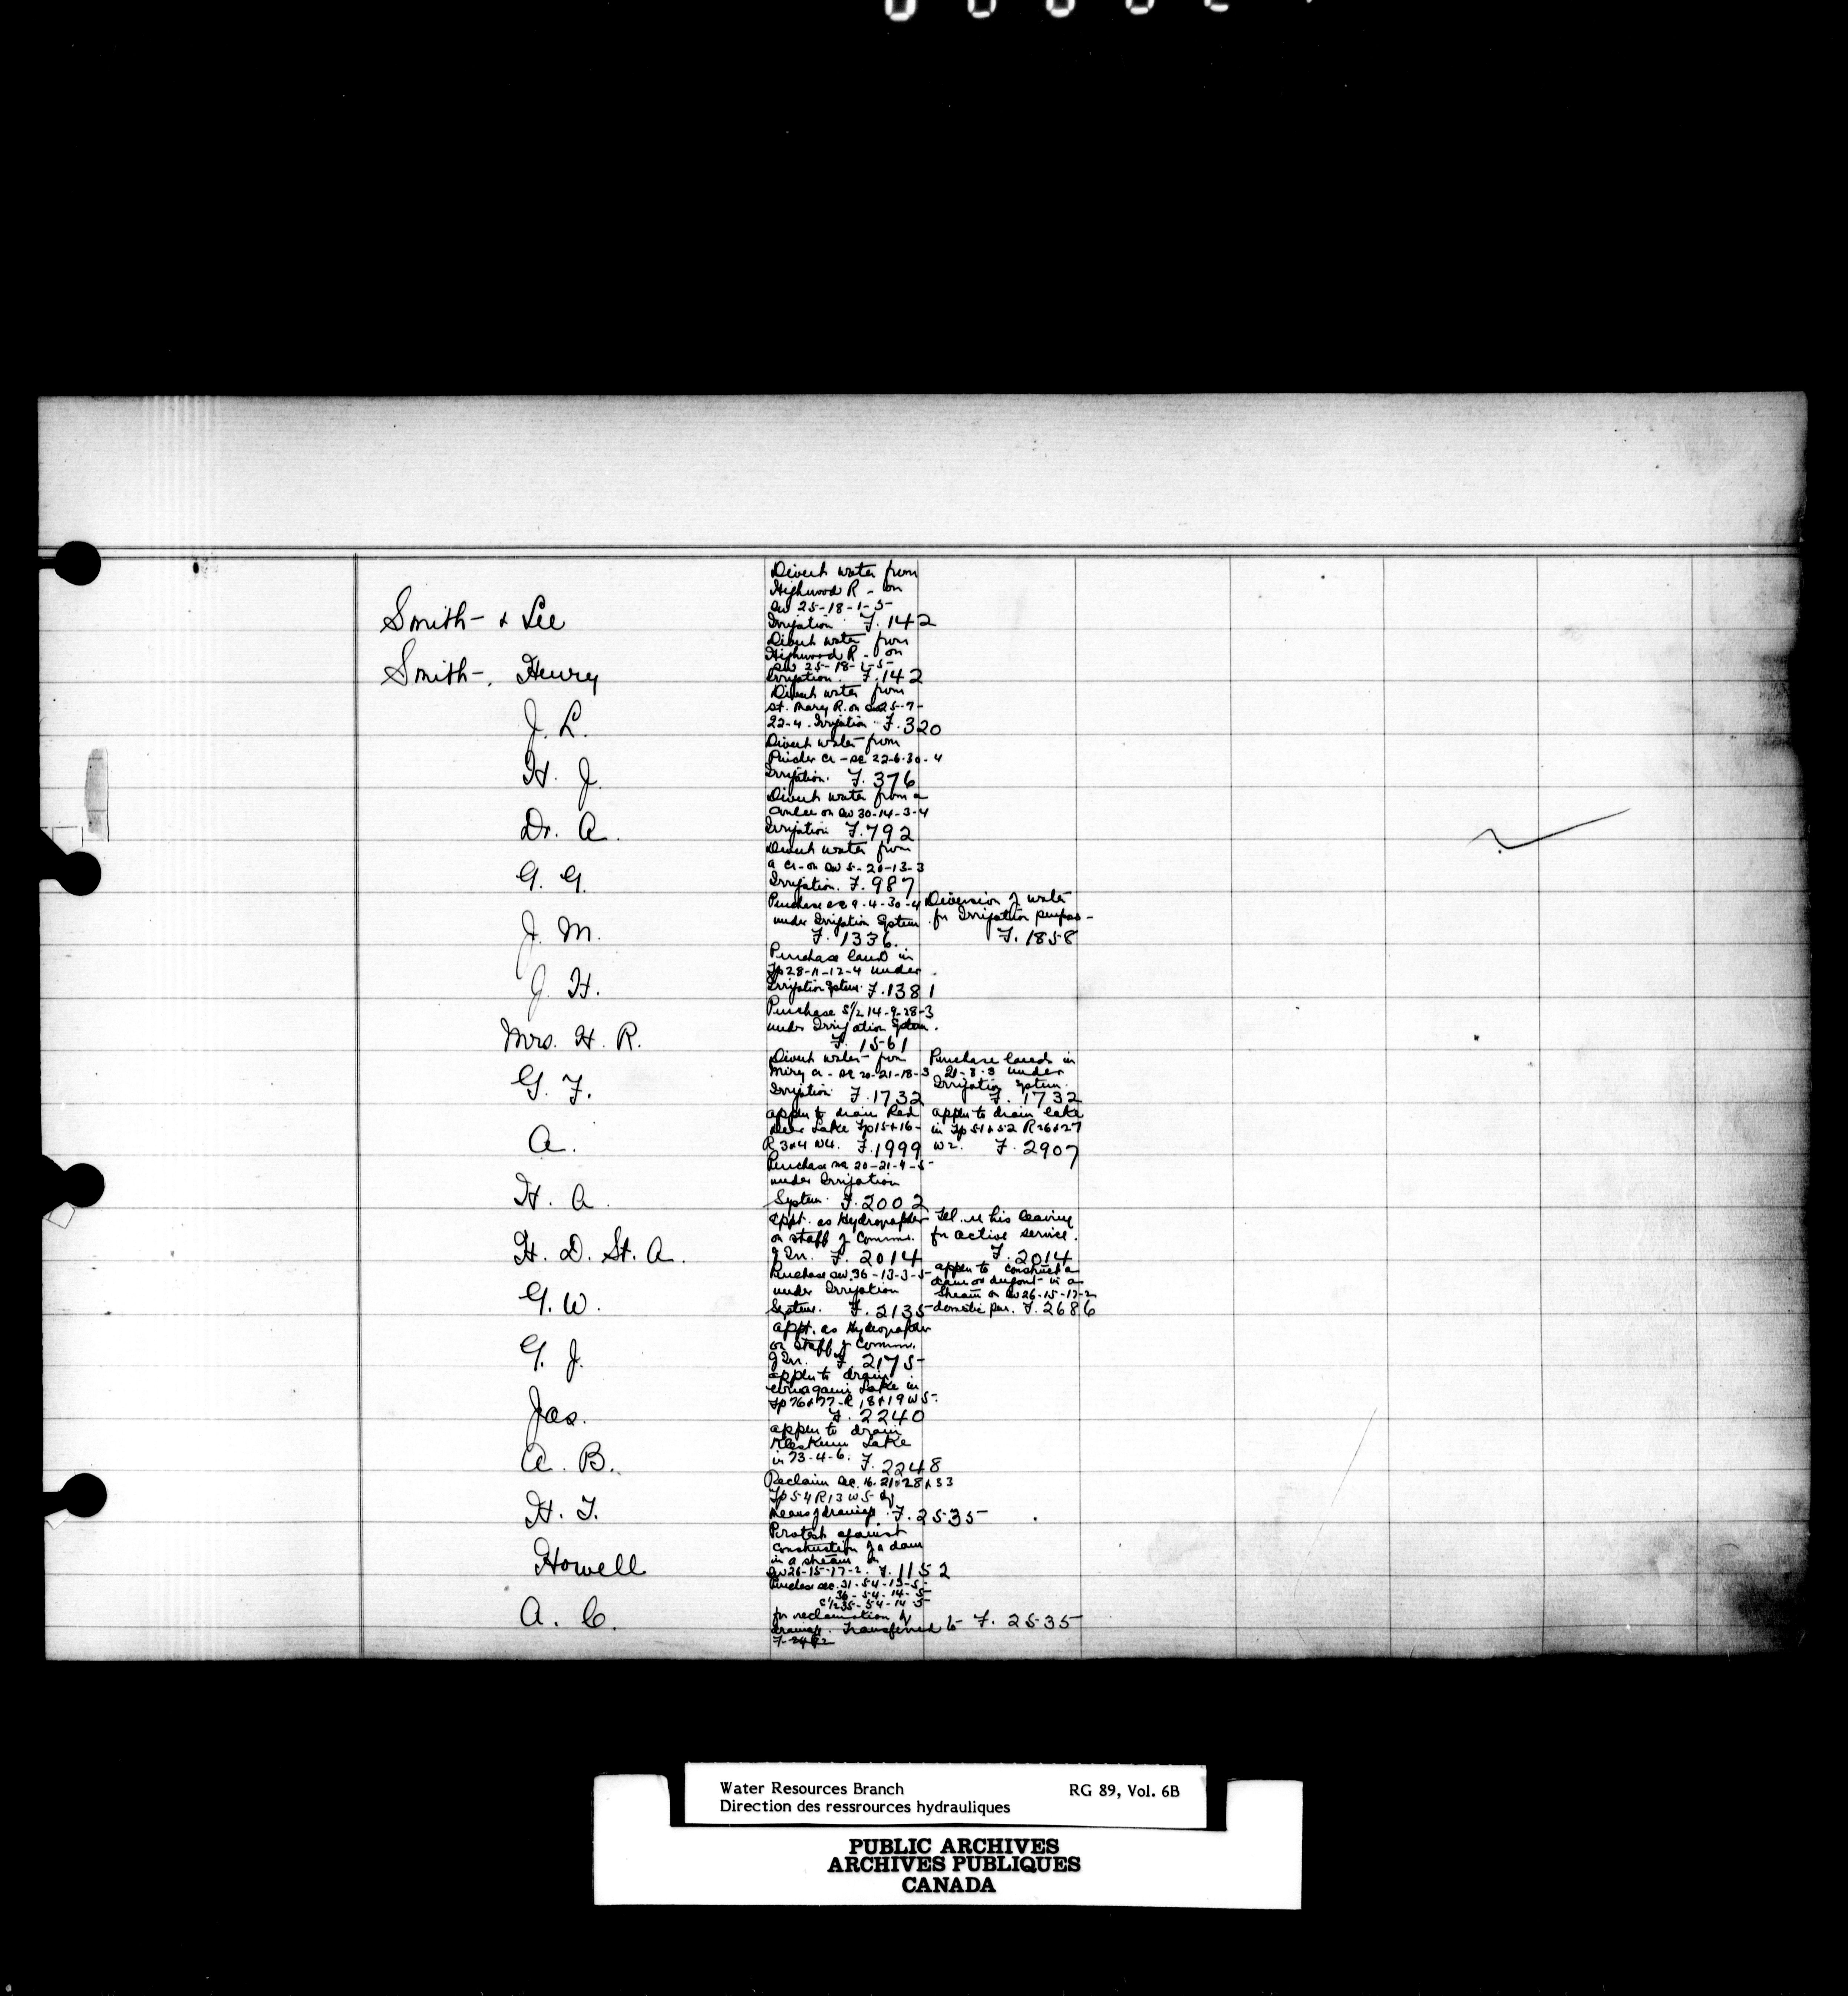 Divert water from
Highwood R - on
SW 25-18-1-5-
Smith - & Lee
Irrigation F. 142
Divert water from
Highwood R - on
SW 25-18-1-5-
Smith-, Henry
Irrigation. F. 142
Divert water from
St. Mary R. on 25-7-
J. L.
22-4. Irrigation F. 320
Divert water from
Pincher Cr - SE 22-6-30-4
H. J.
Irrigation. F. 376
Divert water from a
Coulee on SW 30-14-3-4
Dr. A.
Irrigation F. 792
Divert water from
a Cr - on SW 5-20-13-3
G. G.
Irrigation. F. 987
Purchase 9-4-30-4
under Irrigation System
J. M.
F. 1336.
Diversion of water
for Irrigation purpos-
F. 1858
Purchase land in
Tp 28-11-12-4 under
J. H.
Irrigation System. F. 1381
Purchase S1/2 14-9-28-3
under Irrigation System.
Mrs. H. R.
F. 1561
Divert water from
Miry Cr - SE 20-21-18-3
G. F.
Irrigation F. 1732
Purchase land in
21-8-3 under
Irrigation System.
F. 1732
appln to drain Red
Deer Lake Tp 15 & 16 -
A.
R 3 & 4 W4. F. 1999
appln to drain lake
in Tp 51 & 52 R 26 & 27
W2. F. 2907
Purchase NE 20-21-4-5-
under Irrigation
H. A.
System. F. 2002
Appt. as Hydrographer
on staff of Commr.
H. D. St. A.
of Irr. F. 2014
Tel. re his leaving
for active service.
F. 2014
Purchase SW. 36-13-3-5-
under Irrigation
G. W.
System. F. 2135
appln to construct a
dam or dugout in a
Stream on SW 26-15-17-2
domestic pur. F. 2686
Appt. as Hydrographer
on staff of Commr.
G. J.
of Irr. F. 2175
appln to drain
Winagami Lake in
Tp 76 & 77-R 18 & 19 W5-.
Jas.
F. 2240
appln to drain
Kleskun Lake
A. B.
in 73-4-6. F. 2248
Reclaim Sec. 16. 21 & 28 & 33
Tp 54 R 13 W5 by
H. T.
means of drainage. F. 2535
Protest against
Construction of a dam
in a stream on
Howell
SW 26-15-17-2. F. 1152
Purchase sec. 31-54-13-5-
36-54-14-5-
35-54-14-5-
A. C.
for reclamation by
drainage. Transferred to F. 2535
Water Resources Branch RG 89, Vol. 6B
Direction des ressrources hydrauliques
PUBLIC ARCHIVES
ARCHIVES PUBLIQUES
CANADA